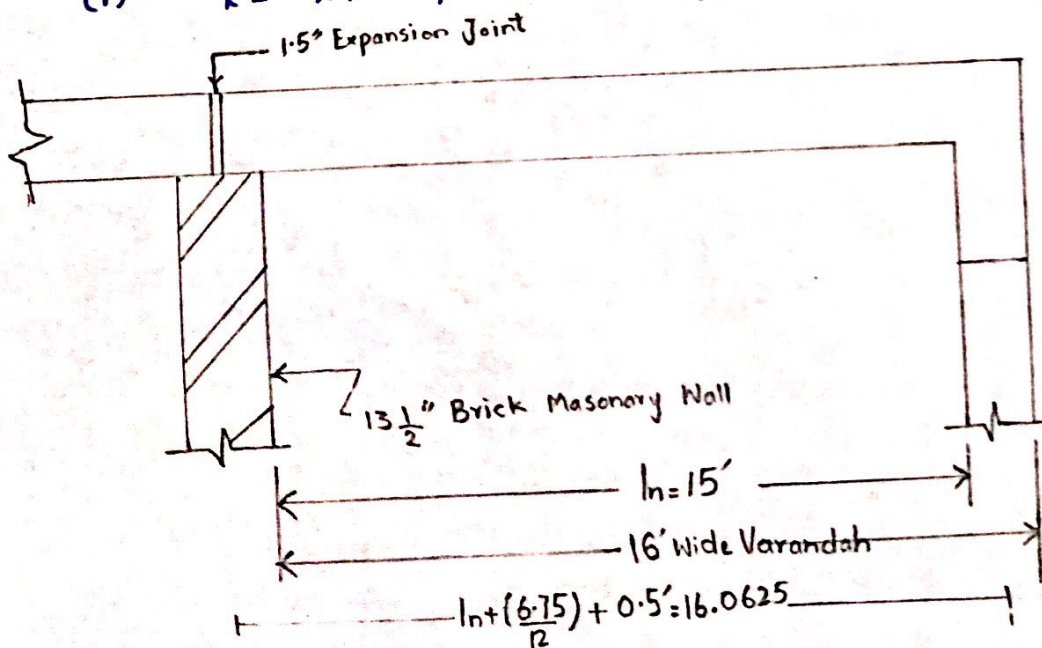 (1)
1.5" Expansion Joint
13 1/2" Brick Masonary Wall
ln=15'
16' Wide Varandah
ln+(6.75/12)+0.5'=16.0625